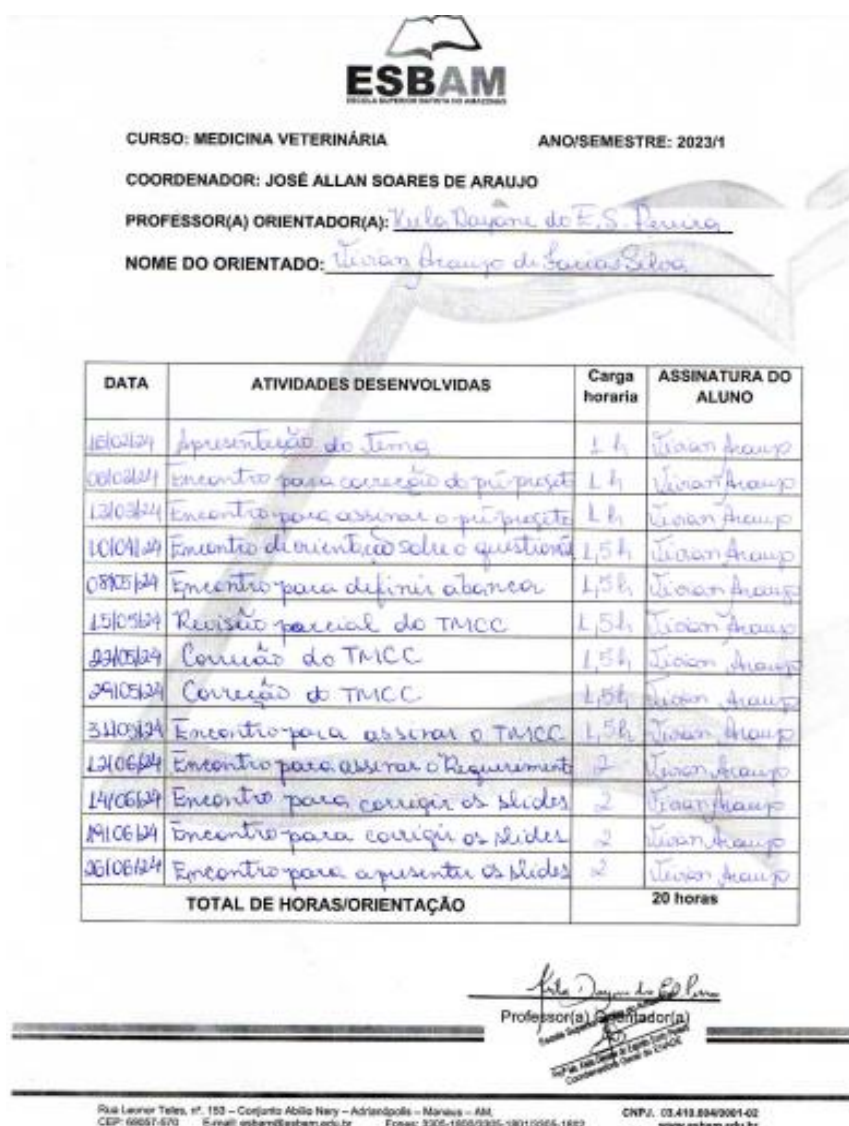 ESBAM
ESCOLA SUPERIOR BATISTA DO AMAZONAS
CURSO: MEDICINA VETERINÁRIA ANO/SEMESTRE: 2023/1
COORDENADOR: JOSÉ ALLAN SOARES DE ARAUJO
PROFESSOR(A) ORIENTADOR(A): Dayane do E. S. Pereira
NOME DO ORIENTADO: Vivian Araujo de Farias Silva
DATA ATIVIDADES DESENVOLVIDAS Carga horaria ASSINATURA DO ALUNO
Apresentação do tema 1 h Vivian Araujo
Encontro para correção do pré-projeto 1 h Vivian Araujo
13/03/24 Encontro para assinar o pré-projeto 1 h Vivian Araujo
10/04/24 Encontro de orientação sobre o questioná 1,5h Vivian Araujo
08/05/24 Encontro para definir a banca 1,5h Vivian Araujo
15/05/24 Revisão parcial do TMCC 1,5h Vivian Araujo
22/05/24 Correção do TMCC 1,5h Vivian Araujo
29/05/24 Correção do TMCC 1,5h Vivian Araujo
31/05/24 Encontro para assinar o TMCC 1,5h Vivian Araujo
12/06/24 Encontro para assinar o Requerimento 2 Vivian Araujo
14/06/24 Encontro para corrigir os slides 2 Vivian Araujo
19/06/24 Encontro para corrigir os slides 2 Vivian Araujo
26/06/24 Encontro para apresentar os slides 2 Vivian Araujo
TOTAL DE HORAS/ORIENTAÇÃO 20 horas
Professor(a) Orientador(a)
Rua Leonor Teles, nº. 153 – Conjunto Abílio Nery – Adrianópolis – Manaus – AM, CNPJ. 03.410.894/0001-02
CEP: 69057-570 E-mail: esbam@esbam.edu.br Fones: www.esbam.edu.br